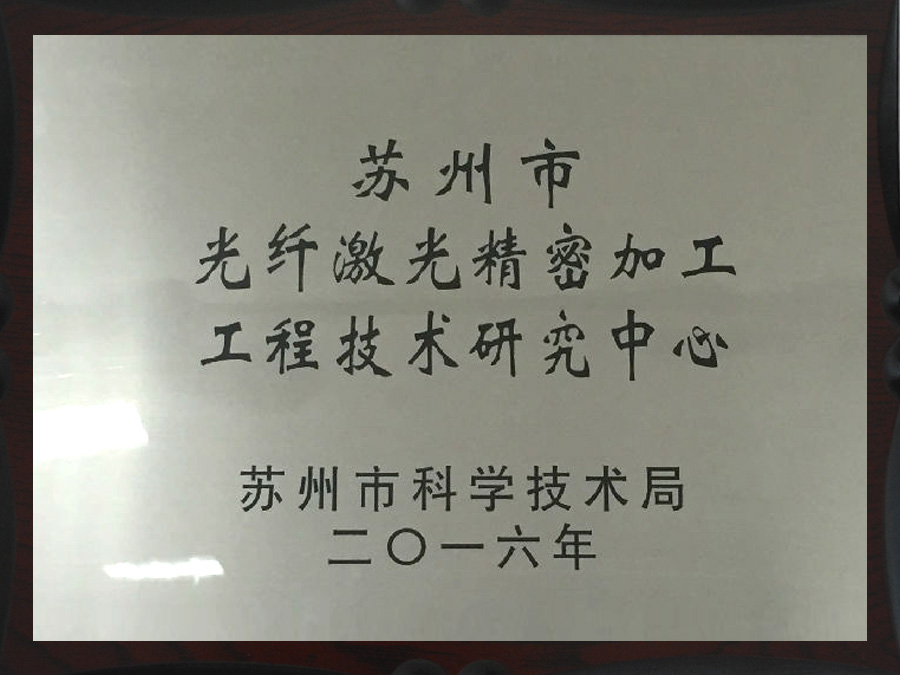 苏州市
光纤激光精密加工
工程技术研究中心
苏州市科学技术局
二〇一六年